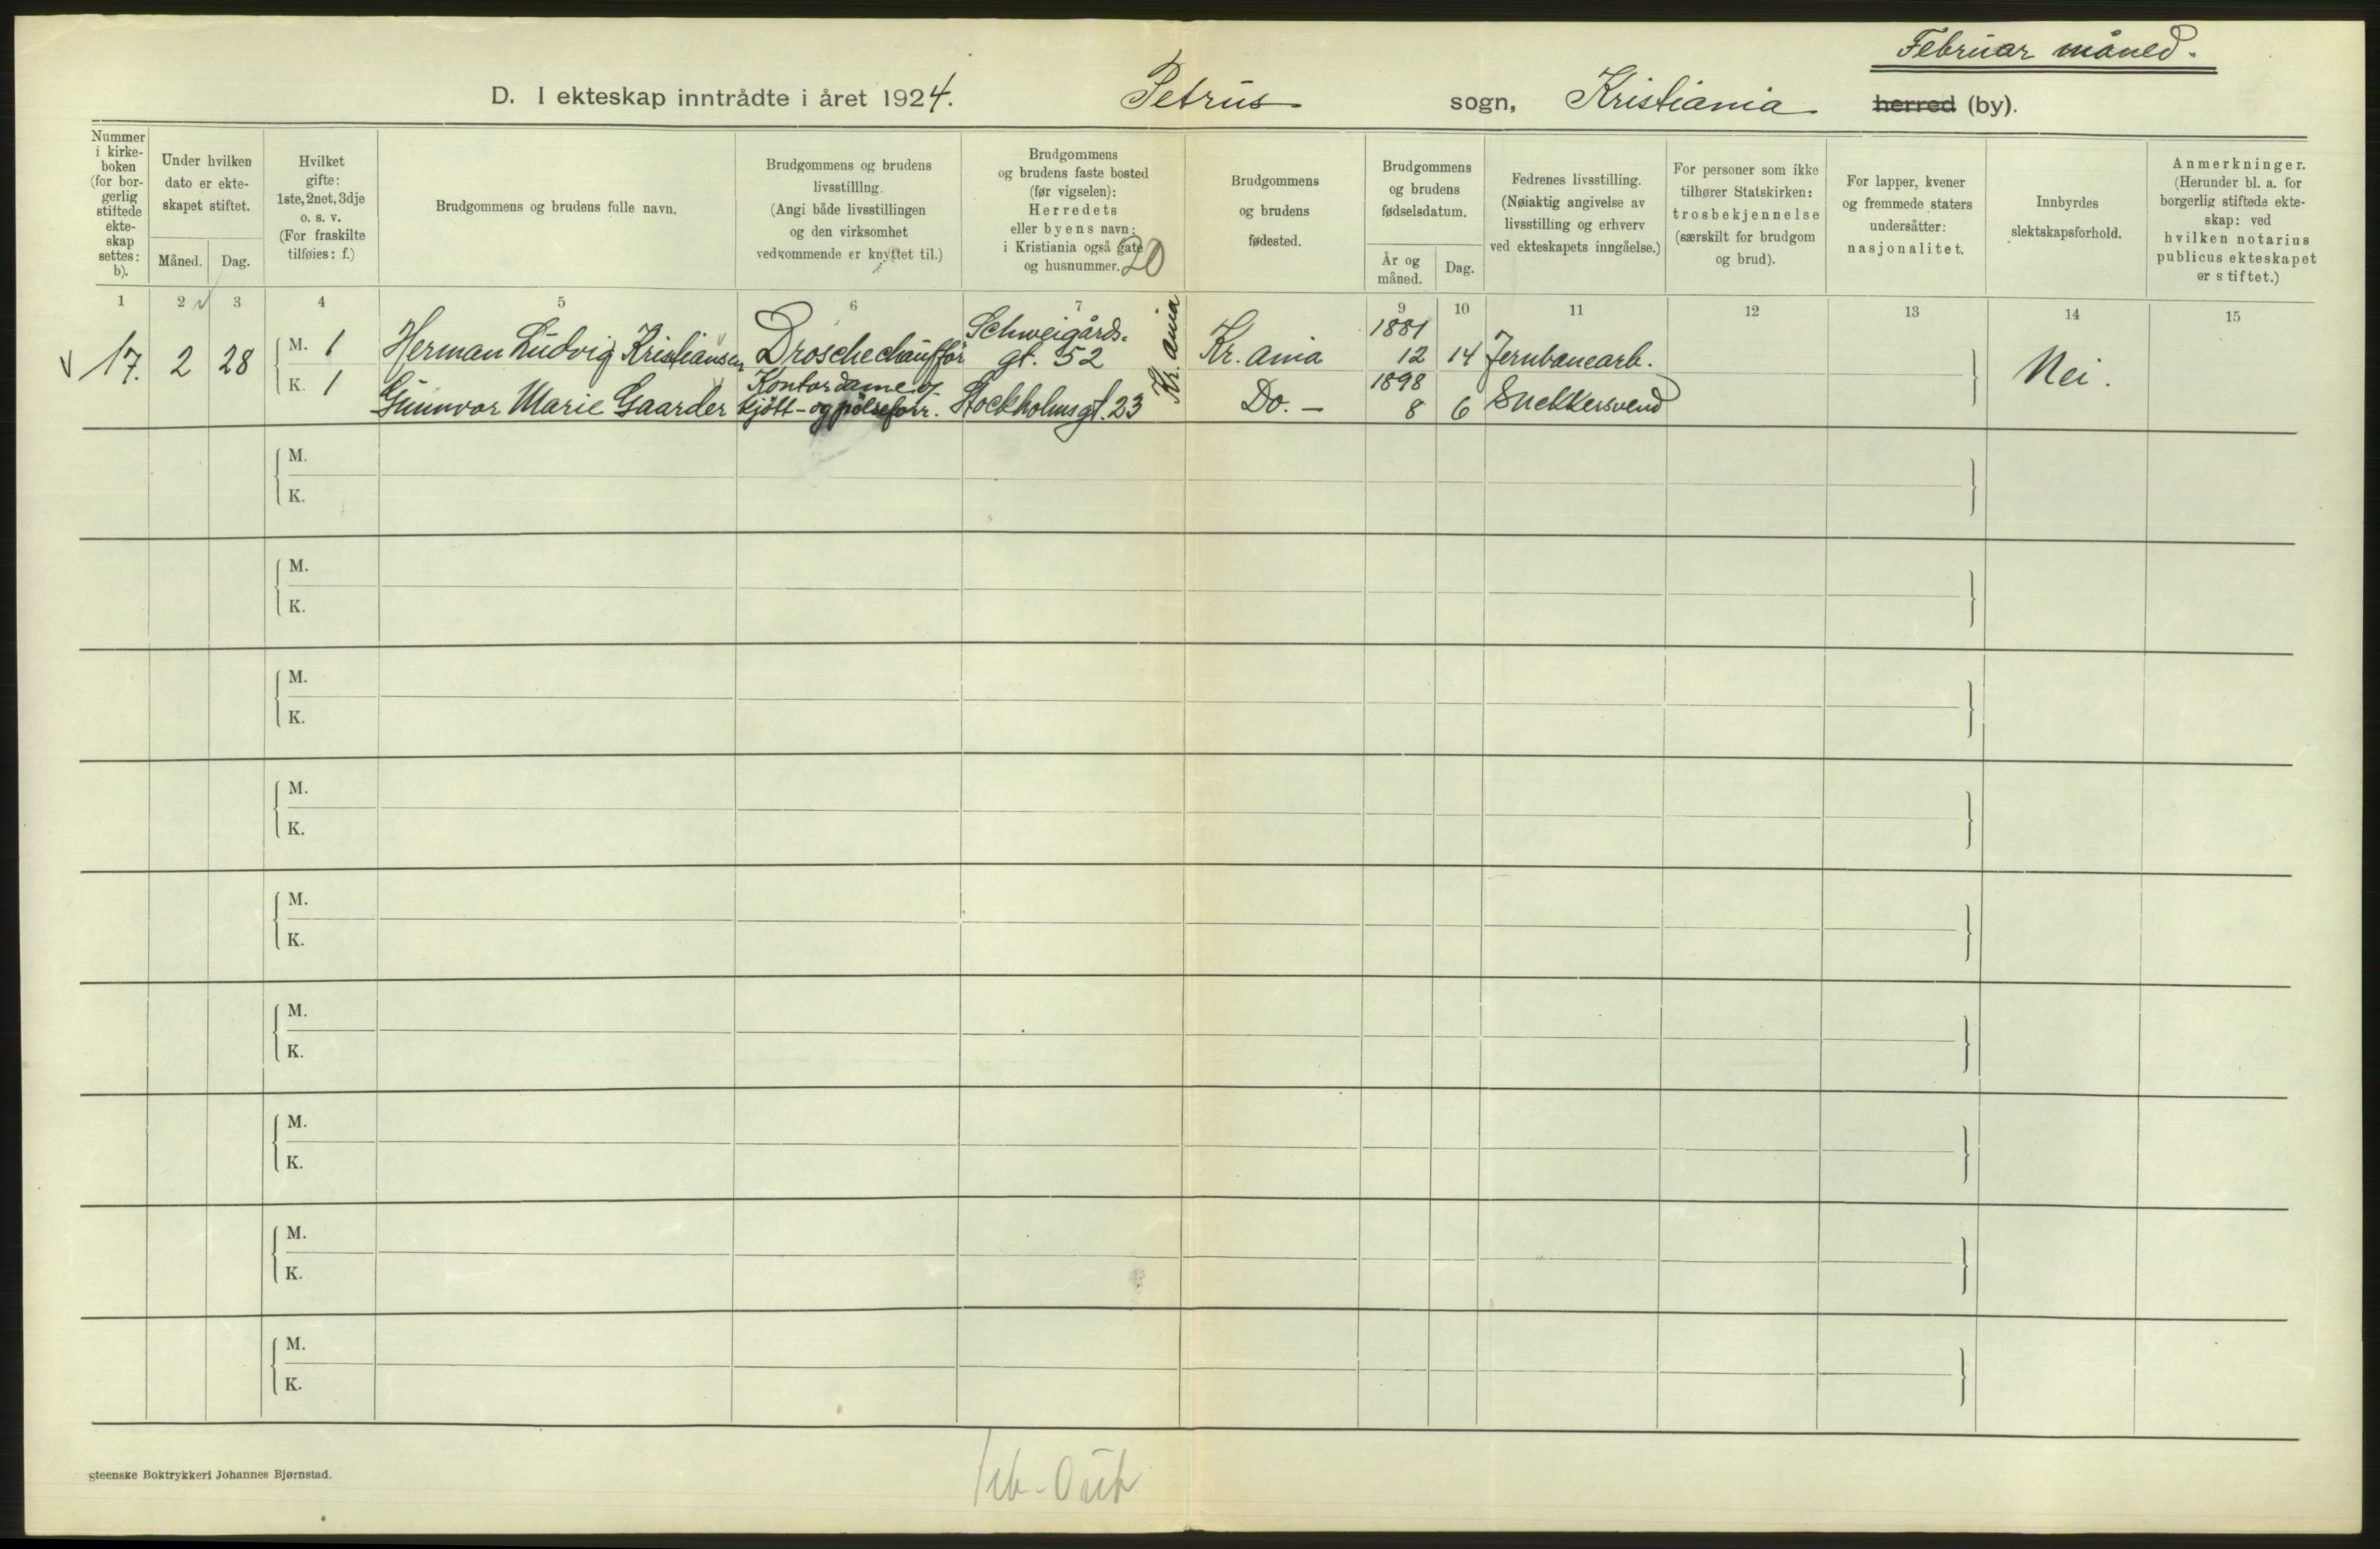 Februar måned.
D. I ekteskap inntrådte i året 1924. Petrus sogn, Kristiania herred (by).
Nummer
i kirke-
boken
(for bor-
gerlig
stiftede
ekte-
skap
settes:
b).
Under hvilken
dato er ekte-
skapet stiftet.
Måned. Dag.
Hvilket
gifte:
1ste, 2net, 3dje
o. s. v.
(For fraskilte
tilføies: f.)
Brudgommens og brudens fulle navn.
Brudgommens og brudens
livsstilling.
(Angi både livsstillingen
og den virksomhet
vedkommende er knyttet til.)
Brudgommens
og brudens faste bosted
(før vigselen):
Herredets
eller byens navn;
i Kristiania også gate
og husnummer. 20
Brudgommens
og brudens
fødested.
Brudgommens
og brudens
fødselsdatum.
År og
måned.
Dag.
Fedrenes livsstilling.
(Nøiaktig angivelse av
livsstilling og erhverv
ved ekteskapets inngåelse.)
For personer som ikke
tilhører Statskirken:
trosbekjennelse
(særskilt for brudgom
og brud).
For lapper, kvener
og fremmede staters
undersåtter:
nasjonalitet.
Innbyrdes
slektskapsforhold.
Anmerkninger.
(Herunder bl. a. for
borgerlig stiftede ekte-
skap: ved
hvilken notarius
publicus ekteskapet
er stiftet.)
1 2 3 4 5 6 7 9 10 11 12 13 14 15
17. 2 28
M. 1 Herman Ludvig Kristiansen Droschechauffør
Schweigårds-
gt. 52
Kr. ania
Kr. ania
1881
12 14 Jernbanearb.
Nei.
K. 1 Gunnvor Marie Gaarder
Kontordame og
kjött- og pølseforr. Stockholmsgt. 23
Do. -
1898
8 6 Snekkersvend
M.
K.
M.
K.
M.
K.
M.
K.
M.
K.
M.
K.
M.
K.
M.
K.
M.
K.
gteenske Boktrykkeri Johannes Bjørnstad.